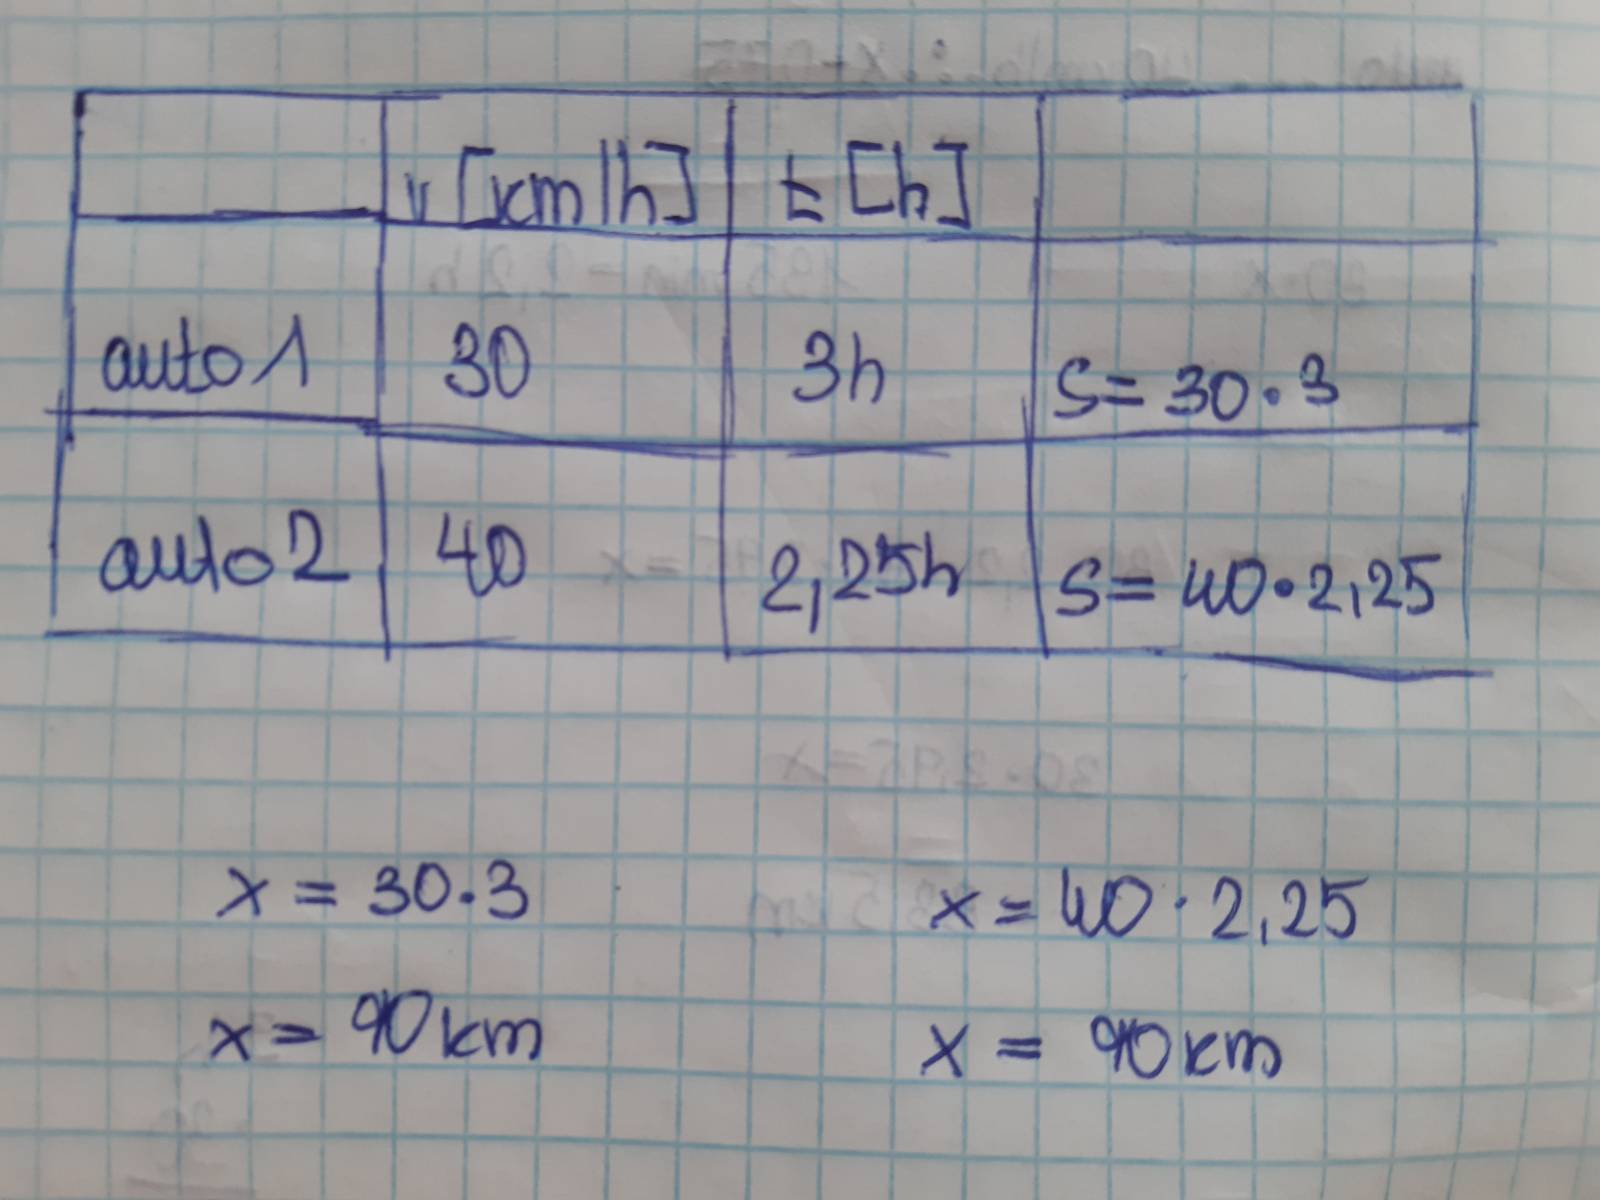 v [km/h] t [h]
auto 1 30 3h S = 30 · 3
auto 2 40 2,25h S = 40 · 2,25
x = 30 · 3 x = 40 · 2,25
x = 90 km x = 90 km